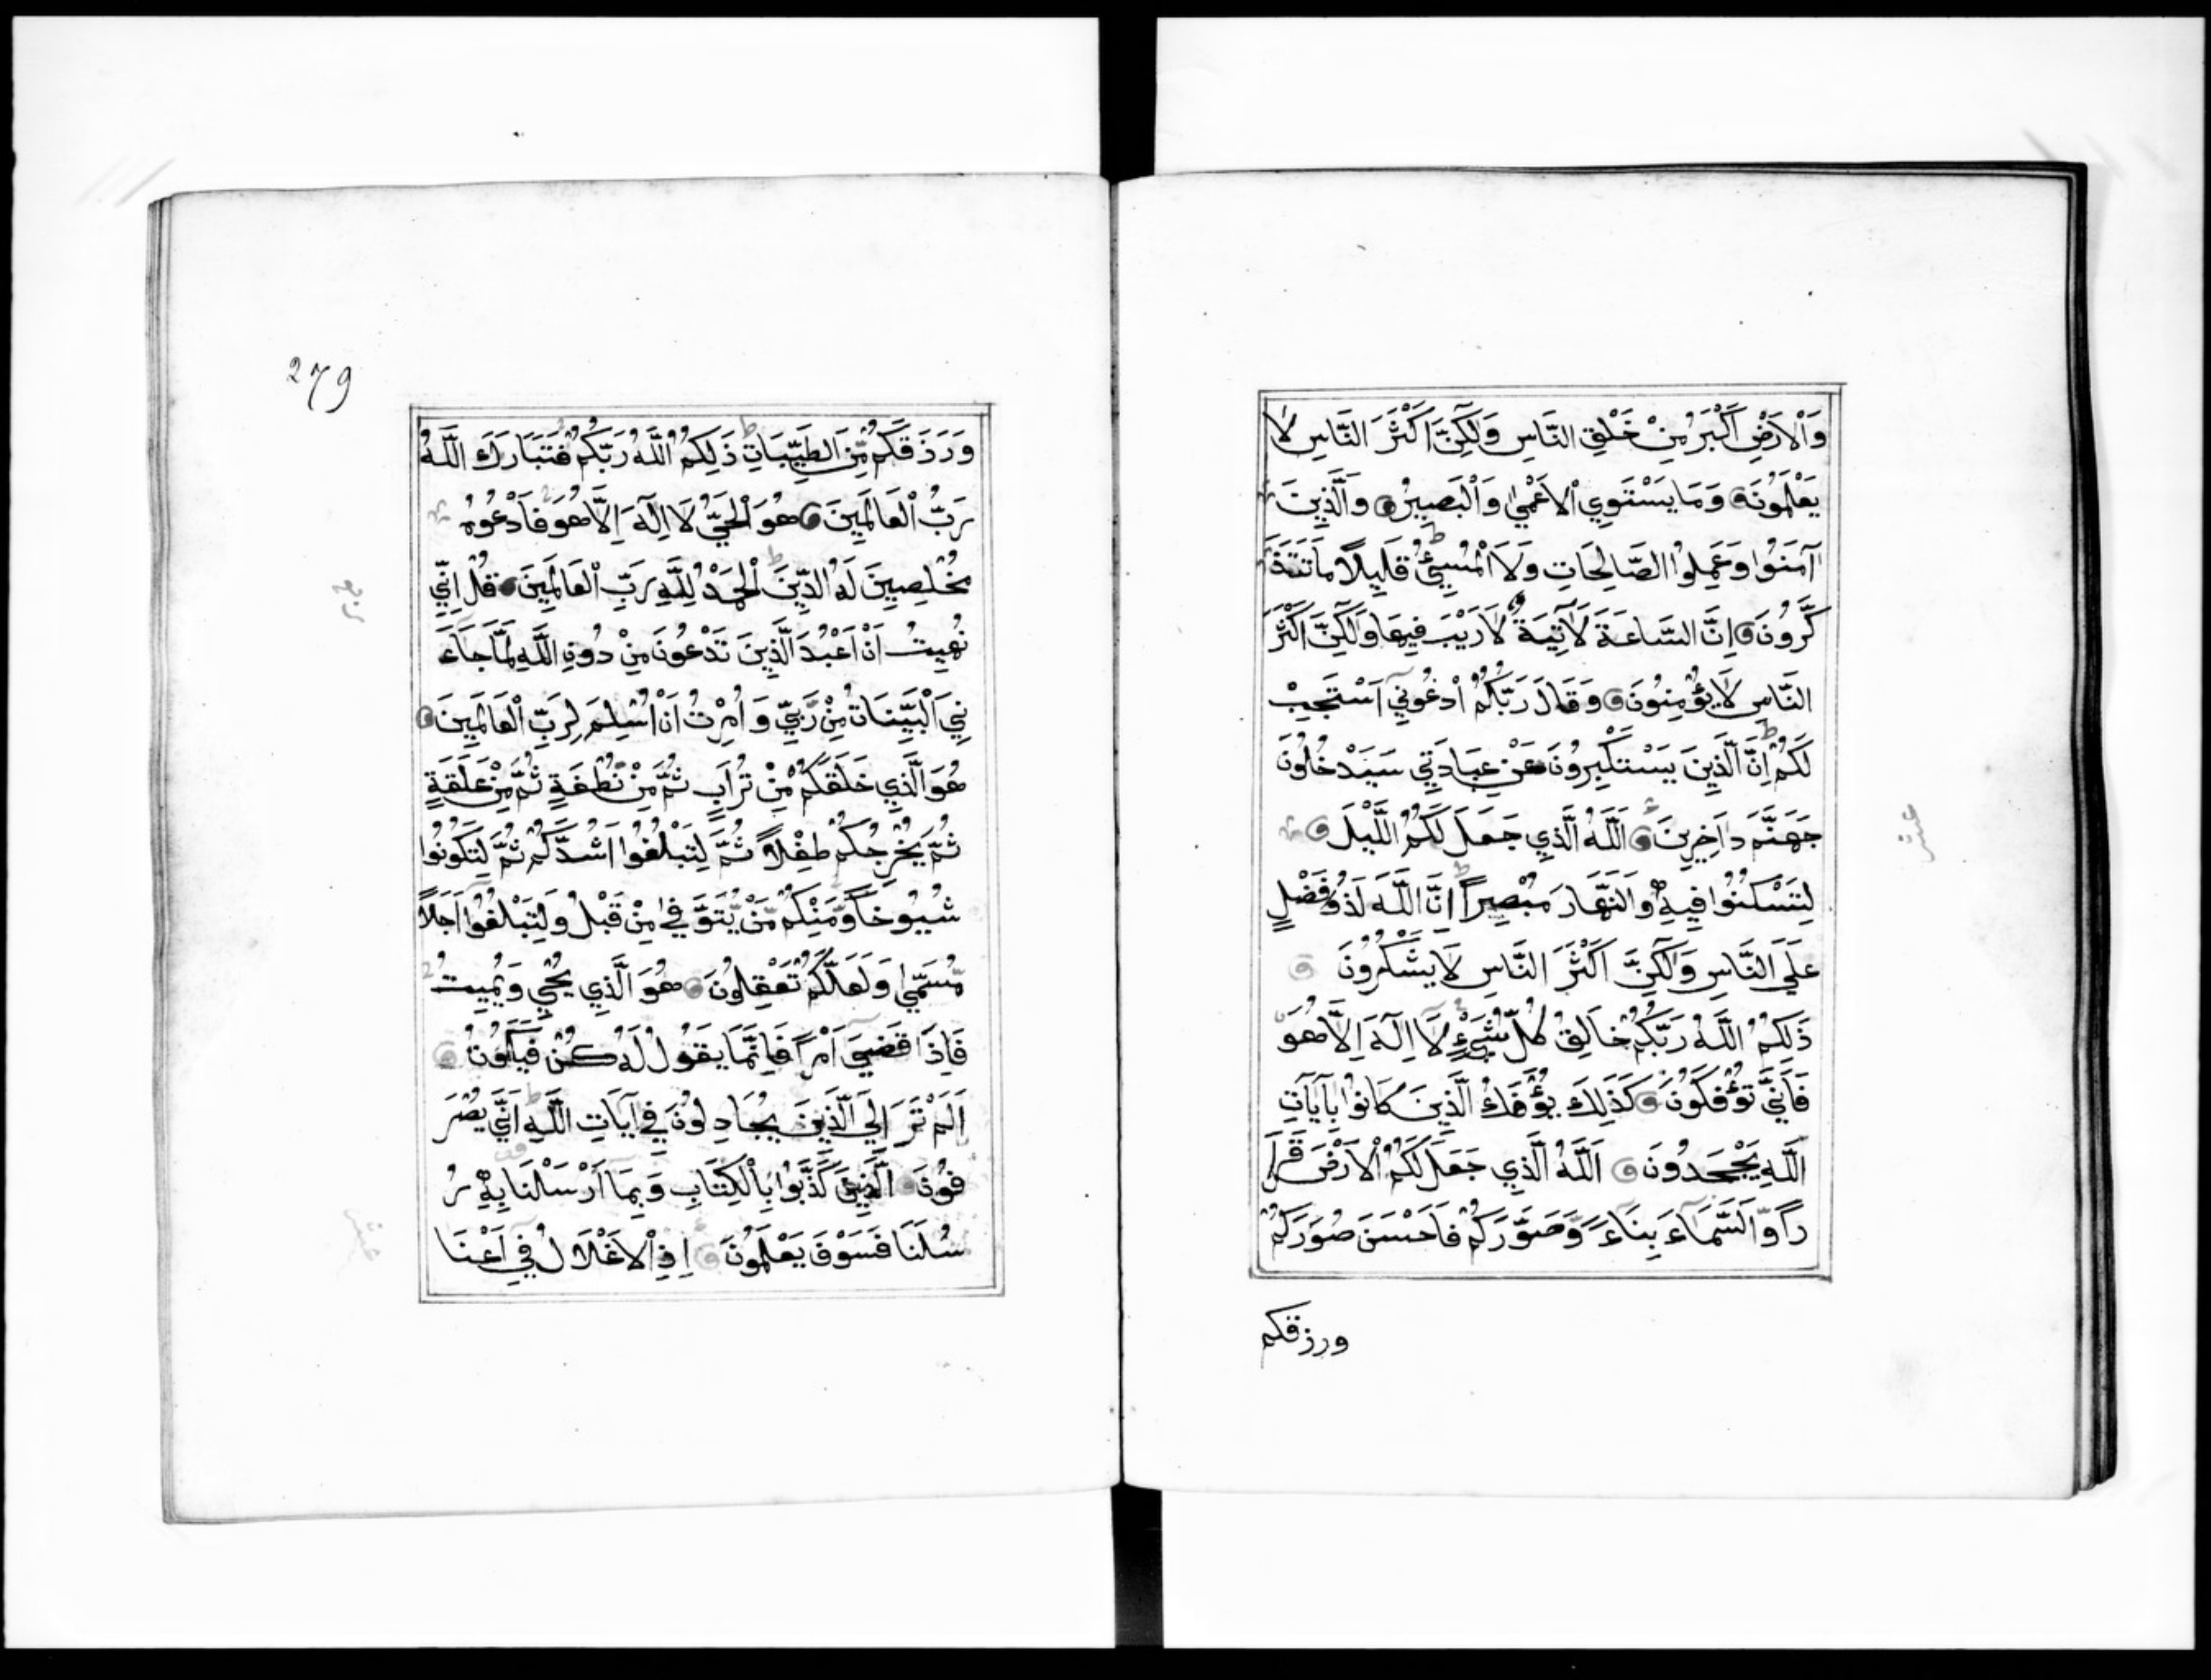 وَالْاَرْضِ اَكْبَرُ مِنْ خَلْقِ النَّاسِ وَلٰكِنَّ اَكْثَرَ النَّاسِ لَا
يَعْلَمُونَ وَمَا يَسْتَوِي الْاَعْمٰي وَالْبَصِيرُ وَالَّذِينَ
آمَنُوا وَعَمِلُوا الصَّالِحَاتِ وَلَا الْمُسِيْئُ قَلِيلًا مَا تَتَذَ
كَّرُونَ اِنَّ السَّاعَةَ لَآتِيَةٌ لَا رَيْبَ فِيهَا وَلٰكِنَّ اَكْثَرَ
النَّاسِ لَا يُؤْمِنُونَ وَقَالَ رَبُّكُمُ ادْعُونِي اَسْتَجِبْ
لَكُمْ اِنَّ الَّذِينَ يَسْتَكْبِرُونَ عَنْ عِبَادَتِي سَيَدْخُلُونَ
جَهَنَّمَ دَاخِرِينَ اَللّٰهُ الَّذِي جَعَلَ لَكُمُ اللَّيْلَ
لِتَسْكُنُوا فِيهِ وَالنَّهَارَ مُبْصِرًا اِنَّ اللّٰهَ لَذُو فَضْلٍ
عَلَي النَّاسِ وَلٰكِنَّ اَكْثَرَ النَّاسِ لَا يَشْكُرُونَ
ذَلِكُمُ اللّٰهُ رَبُّكُمْ خَالِقُ كُلِّ شَيْءٍ لَا اِلَهَ اِلَّا هُوَ
فَاَنّٰي تُؤْفَكُونَ كَذَلِكَ يُؤْفَكُ الَّذِينَ كَانُوا بِآيَاتِ
اللّٰهِ يَجْحَدُونَ اَللّٰهُ الَّذِي جَعَلَ لَكُمُ الْاَرْضَ قَرَا
رًا وَالسَّمَاءَ بِنَاءً وَصَوَّرَكُمْ فَاَحْسَنَ صُوَرَكُمْ
ورزقكم
عشر
279
وَرَزَقَكُمْ مِنَ الطَّيِّبَاتِ ذَلِكُمُ اللّٰهُ رَبُّكُمْ فَتَبَارَكَ اللّٰهُ
رَبُّ الْعَالَمِينَ هُوَ الْحَيُّ لَا اِلَهَ اِلَّا هُوَ فَادْعُوهُ
مُخْلِصِينَ لَهُ الدِّينَ اَلْحَمْدُ لِلّٰهِ رَبِّ الْعَالَمِينَ قُلْ اِنِّي
نُهِيتُ اَنْ اَعْبُدَ الَّذِينَ تَدْعُونَ مِنْ دُونِ اللّٰهِ لَمَّا جَاءَ
نِيَ الْبَيِّنَاتُ مِنْ رَبِّي وَاُمِرْتُ اَنْ اُسْلِمَ لِرَبِّ الْعَالَمِينَ
هُوَ الَّذِي خَلَقَكُمْ مِنْ تُرَابٍ ثُمَّ مِنْ نُطْفَةٍ ثُمَّ مِنْ عَلَقَةٍ
ثُمَّ يُخْرِجُكُمْ طِفْلًا ثُمَّ لِتَبْلُغُوا اَشُدَّكُمْ ثُمَّ لِتَكُونُوا
شُيُوخًا وَمِنْكُمْ مَنْ يُتَوَفّٰي مِنْ قَبْلُ وَلِتَبْلُغُوا اَجَلًا
مُسَمّٰي وَلَعَلَّكُمْ تَعْقِلُونَ هُوَ الَّذِي يُحْيِي وَيُمِيتُ
فَاِذَا قَضٰي اَمْرًا فَاِنَّمَا يَقُولُ لَهُ كُنْ فَيَكُونُ
اَلَمْ تَرَ اِلَي الَّذِينَ يُجَادِلُونَ فِي آيَاتِ اللّٰهِ اَنّٰي يُصْرَ
فُونَ الَّذِينَ كَذَّبُوا بِالْكِتَابِ وَبِمَا اَرْسَلْنَا بِهِ رُ
سُلَنَا فَسَوْفَ يَعْلَمُونَ اِذِ الْاَغْلَالُ فِي اَعْنَا
عشر